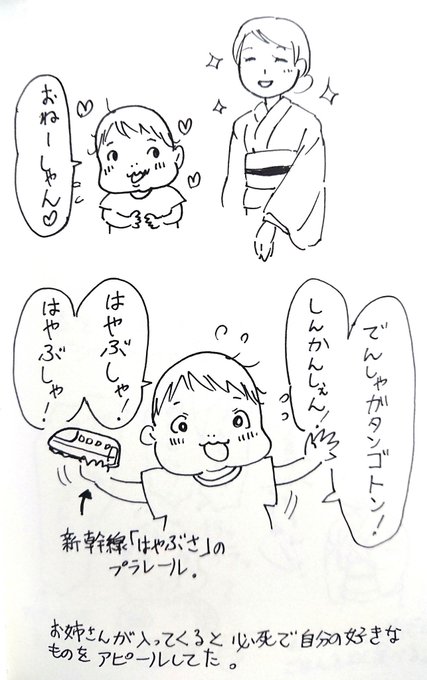 おねーしゃん♡
でんしゃがタンゴトン!
しんかんしぇん!
はやぶしゃ!
はやぶしゃ!
新幹線「はやぶさ」の
プラレール。
お姉さんが入ってくると必死で自分の好きな
ものをアピールしてた。